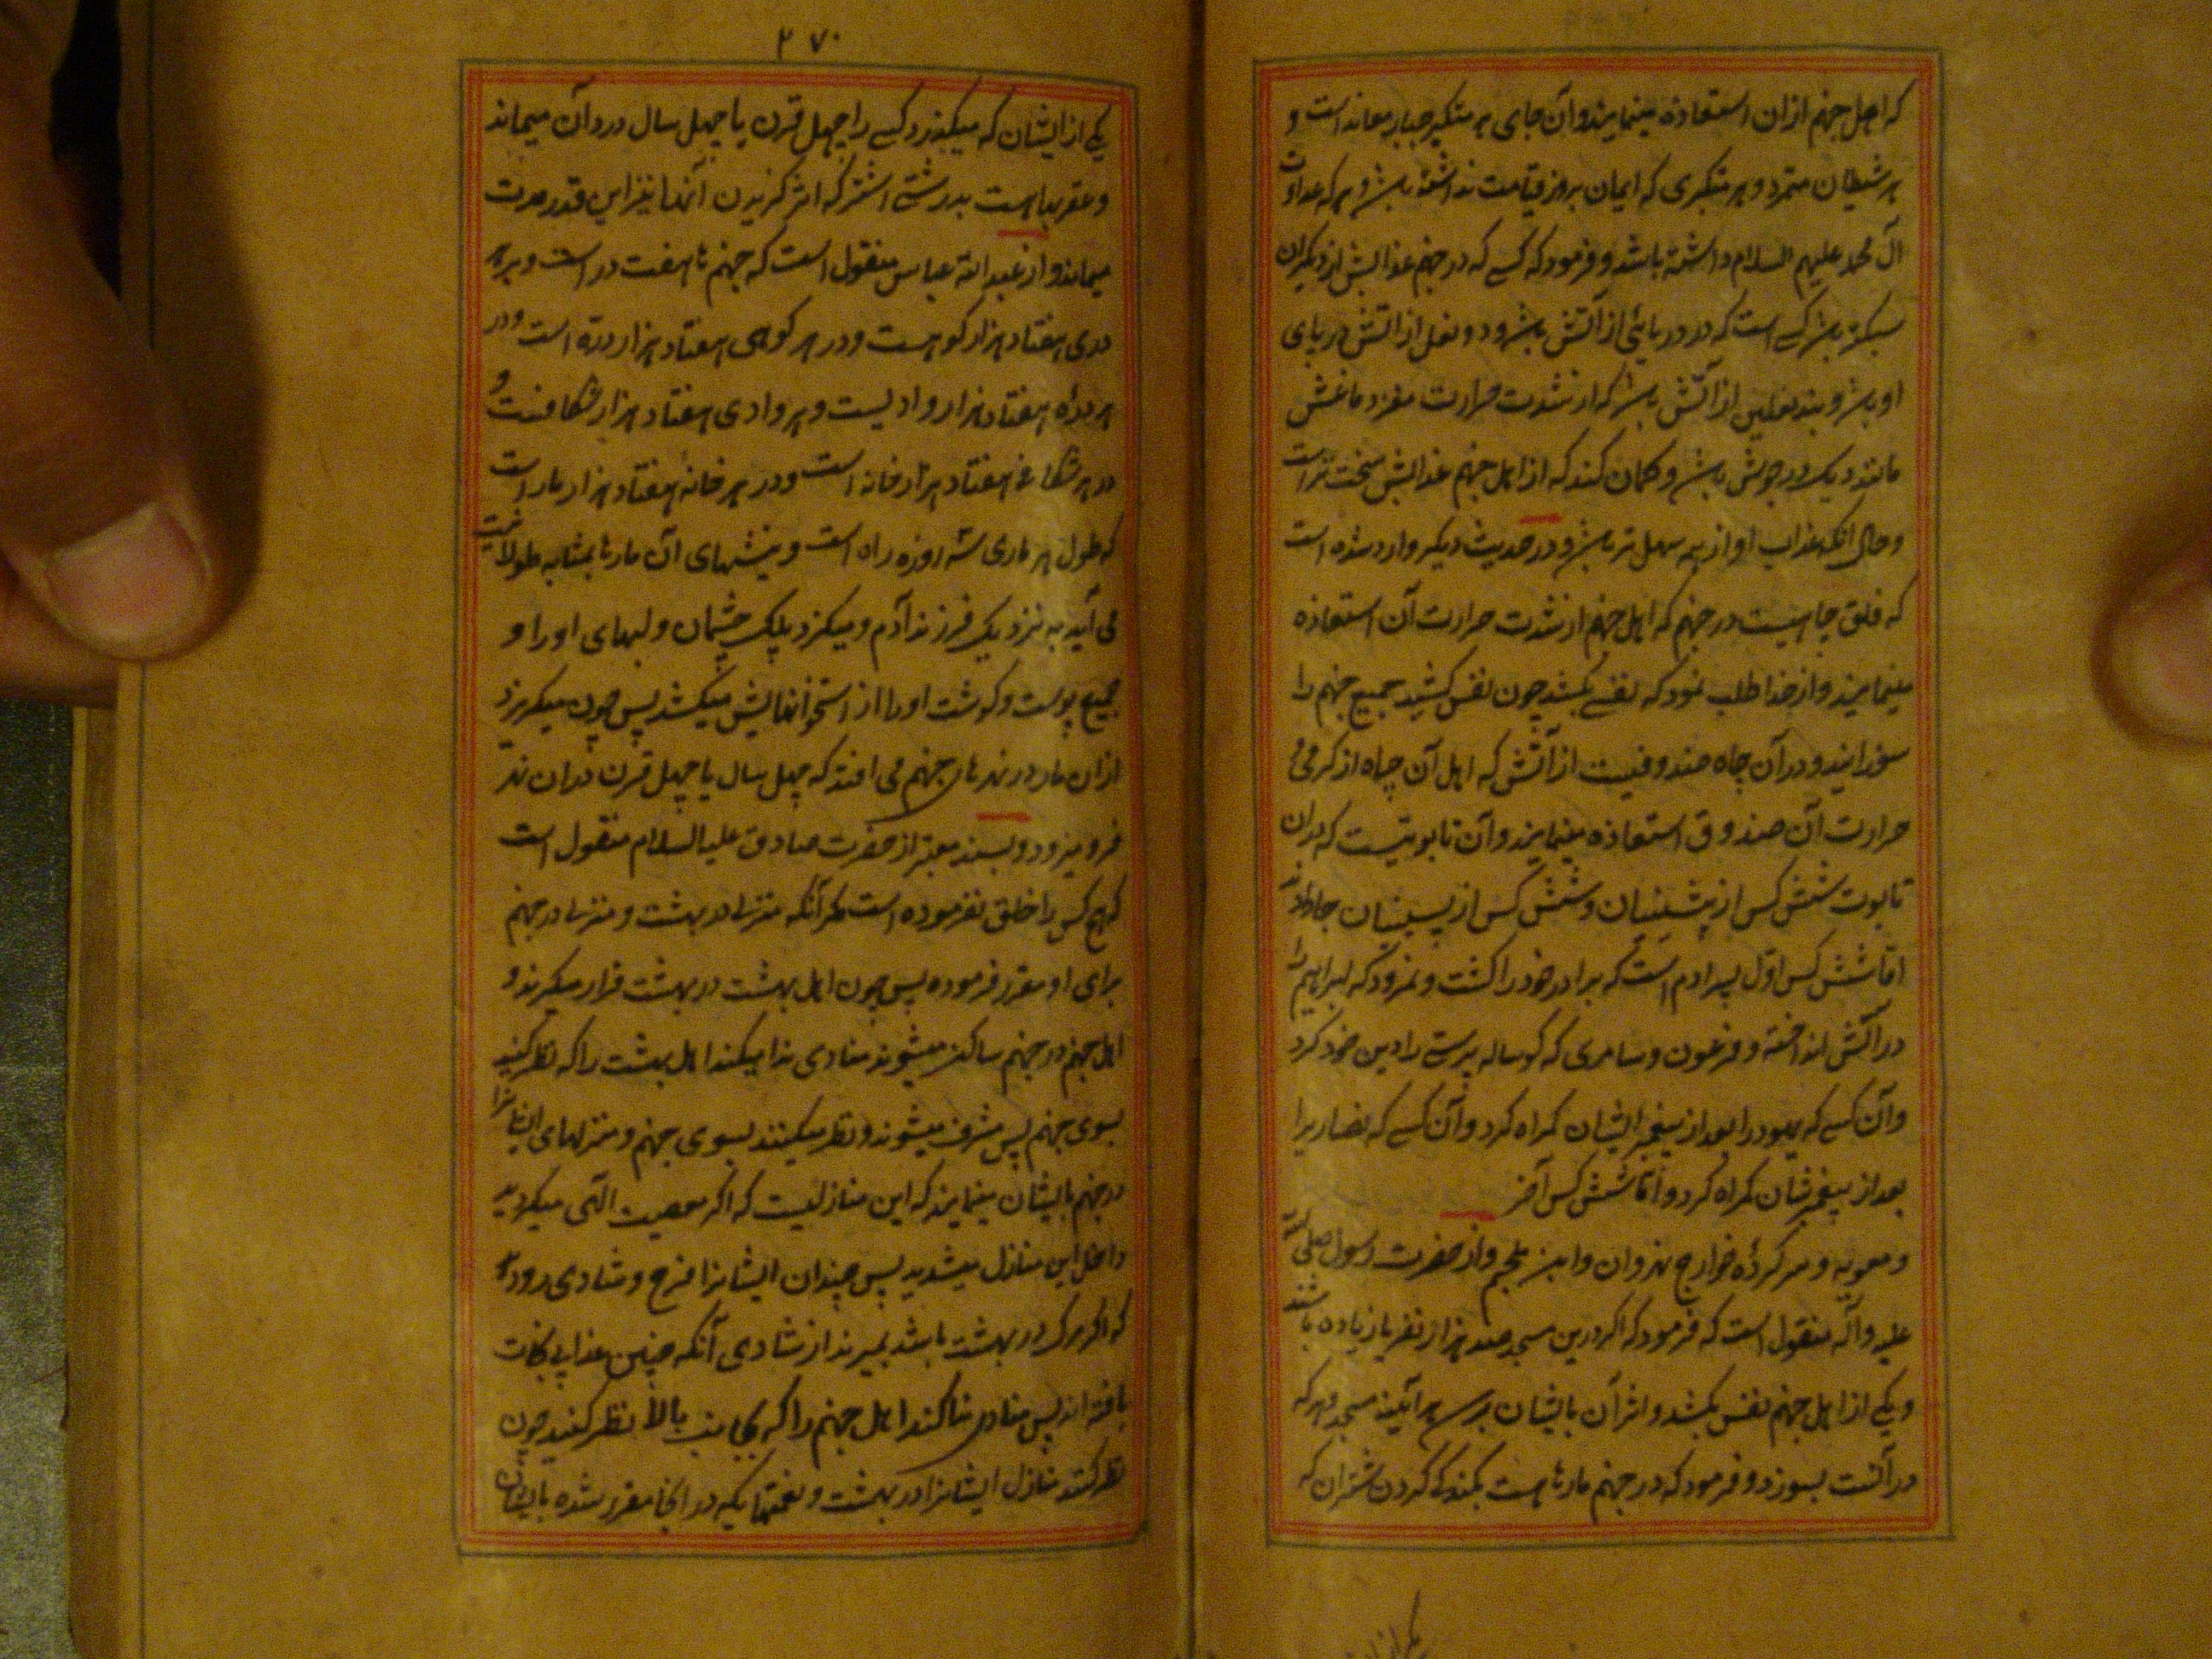 که اهل جهنم ازان استعاذه مینمایند و آن جای هر متکبر جبار معاند است و
هر شیطان متمرد و هر متکبری که ایمان بروز قیامت نداشته باشد و هر که عداوت
آل محمد علیهم السلام داشته باشد و فرمود که کسے که در جهنم عذابش از دیکران
سبکتر باشد کسے است که در دریائی از آتش باشد و دو نعل از آتش در پای
او باشد و بند نعلین از آتش باشد که از شدت حرارت مغز دماغش
مانند دیک در جوش باشد و کمان کند که از اهل جهنم عذابش سخت تر است
و حال انکه عذاب او از همه سهل تر باشد و در حدیث دیکر وارد شده است
که فلق چاهیست در جهنم که اهل جهنم از شدت حرارت آن استعاذه
مینمایند و از خدا طلب نمود که نفسے بکشد چون نفس کشید جمیع جهنم را
سوزانید و در آن چاه صندوقیست از آتش که اهل آن چاه از کرمی
حرارت آن صندوق استعاذه مینمایند و آن تابوتیست که دران
تابوت شش کس از پیشینیان و شش کس از پسینیان جا دارند
اما شش کس اول پسر ادم است که برادر خود را کشت و نمرود که ابراهیم را
در آتش انداخته و فرعون و سامری که کوساله پرستے را دین خود کرد
و آن کسے که یهود را بعد از پیغمبر ایشان کمراه کرد و آن کسے که نصاریرا
بعد از پیغمبرشان کمراه کرد و اما شش کس آخر
و معویه و سر کرده خوارج نهروان و ابن ملجم و از حضرت رسول صلی الله
علیه و آله منقول است که فرمود که اکر درین مسجد صد هزار نفر یا زیاده باشند
و یکے از اهل جهنم نفس بکشد و اثر آن بایشان برسد هر آینه مسجد و هر که
در آنست بسوزد و فرمود که در جهنم مارها هست بکندکے کردن شتران که
۲۷۰
یکے از ایشان که میکزد کسے را چهل قرن یا چهل سال در درد آن میماند
و عقربها هست بدرشتے اشتر که اثر کزیدن آنها نیز این قدر مدت
میماند و از عبد الله عباس منقول است که جهنم را هفت در است و بر هر
دری هفتاد هزار کوه است و در هر کوهی هفتاد هزار دره است و در
هر دره هفتاد هزار وادیست و هر وادی هفتاد هزار شکافست و
در هر شکافی هفتاد هزار خانه است و در هر خانه هفتاد هزار مار است
که طول هر ماری سه روزه راه است و نیشهای آن مارها بمثابه نخلهای طولانیست
می آید به نزدیک فرزند آدم و میکزد پلک چشمان و لبهای او را و
جمیع پوست و کوشت او را از استخوانهایش میکشد پس چون میکریزد
ازان مار در نهرهای جهنم می افتد که چهل سال یا چهل قرن دران نهر
فرو میرود و بسند معتبر از حضرت صادق علیه السلام منقول است
که هیچ کس را خلق نفرموده است مکر آنکه منزلے در بهشت و منزلے در جهنم
برای او مقرر فرموده پس چون اهل بهشت در بهشت قرار میکیرند و
اهل جهنم در جهنم ساکن میشوند منادی ندا میکند اهل بهشت را که نظر کنید
بسوی جهنم پس مشرف میشوند و نظر میکنند بسوی جهنم و منزلهای ایشانرا
در جهنم بایشان مینمایند که این منازلیست که اکر معصیت الٓهی میکردید
داخل این منازل میشدید پس چندان ایشانرا فرح و شادی رو دهد
که اکر مرک در بهشت باشد بمیرند از شادی آنکه چنین عذابی نجات
یافته اند پس منادی ندا کند اهل جهنم را که بجانب بالا نظر کنید چون
نظر کنند منازل ایشانرا در بهشت و نعمتهائیکه در آنجا مقرر شده بایشان